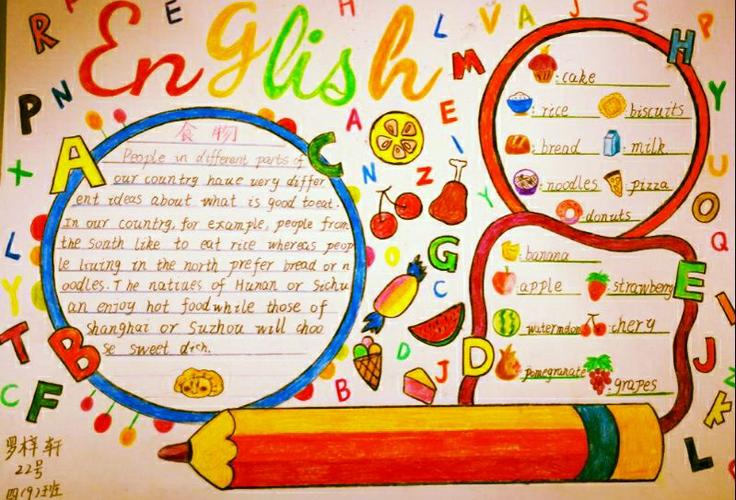 English
食物
People in different parts of
our country have very differ
ent ideas about what is good toeat.
In our country, for example, people from
the south like to eat rice whereas peop
le living in the north prefer bread or n
oodles. The natives of Hunan or Sichu
an enjoy hot food while those of
shanghai or Suzhou will choo
se sweet dich.
:cake
:rice
:biscuits
:bread
:milk
:noodles
:pizza
:donuts
:banana
:apple
:strawberry
:watermelon
:chery
:pomegranate
:grapes
R
E
H
L
V
A
J
S
P
M
H
P
N
Y
A
E
I
A
C
X
N
Z
Y
U
O
Q
L
O
G
C
E
I
Y
T
B
D
D
J
J
C
F
B
Z
K
L
22号
四(9)班